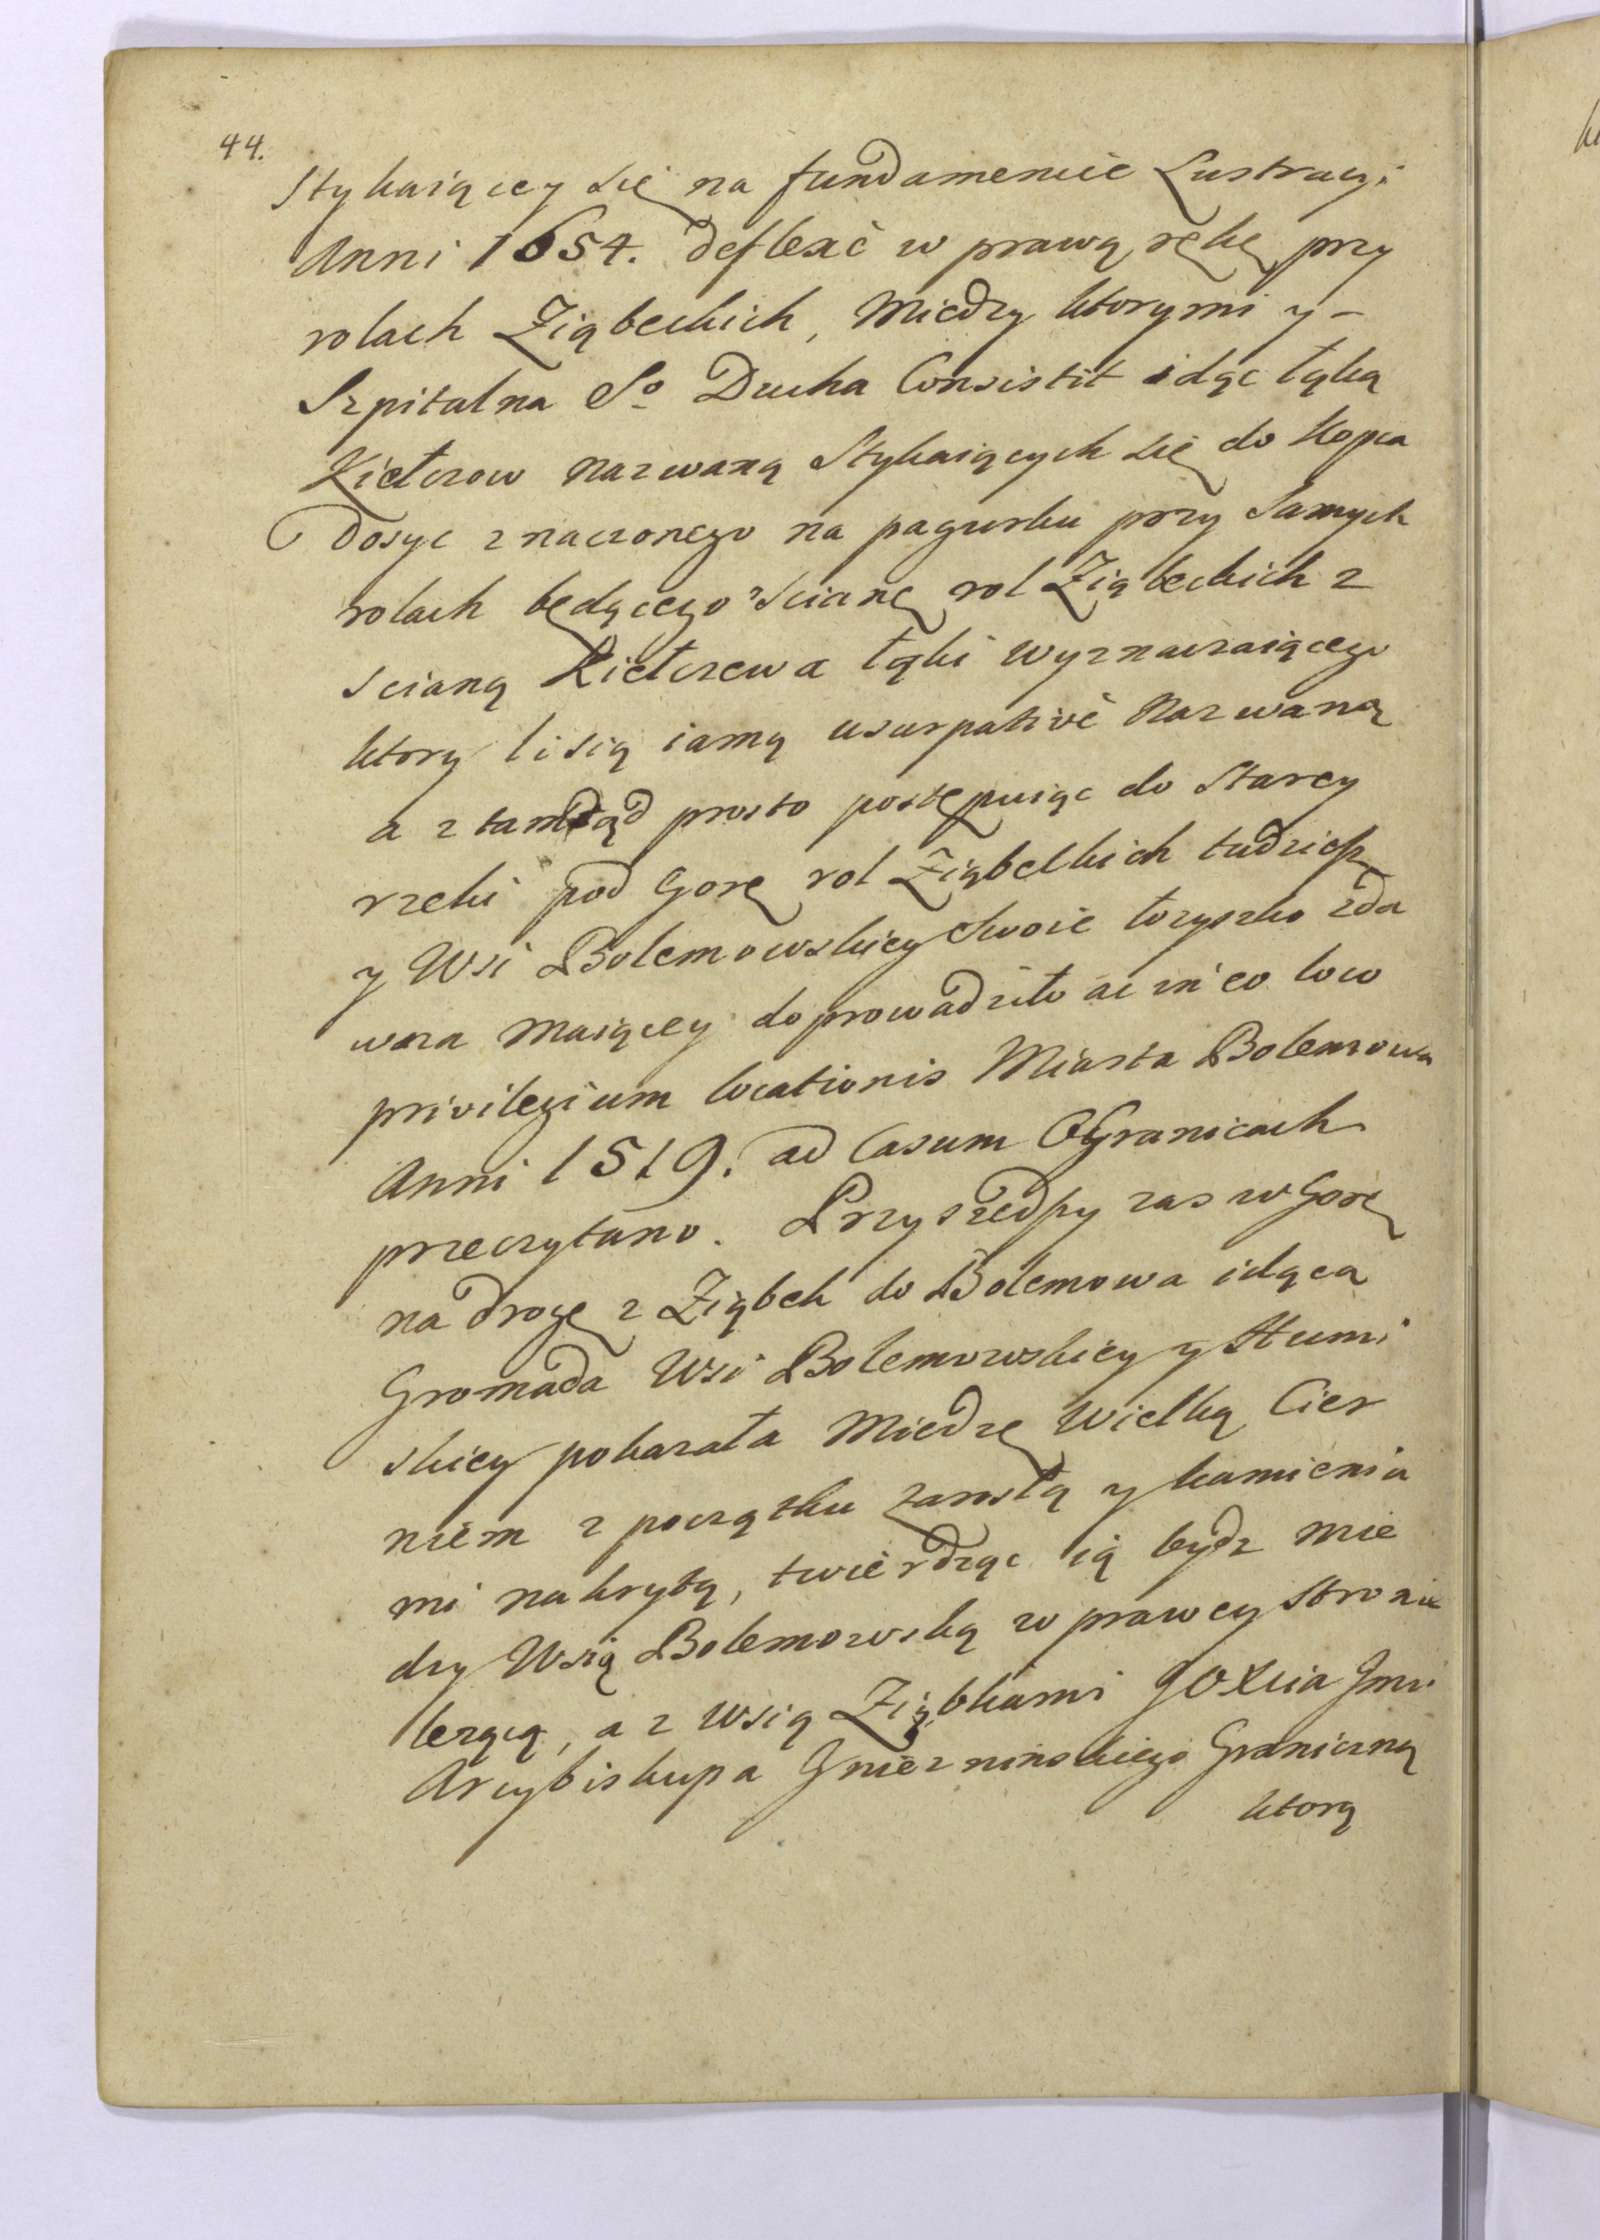 44.
Stykaiącey się na fundamencie Lustracyi
Anni 1654. deflexè w prawą rękę przy
rolach Ziąbeckich, Między ktorymi y –
Szpitalna So Ducha Consistit idąc łąką
Kiełczow nazwaną Stykaiących się do Kopca
dosyc znaczonego na pagurku przy Samych
rolach będącego scianę rol Ziąbeckich z
scianą Kiełczewa łąki wyznaczaiącego
ktory lisią iamą usurpativè Nazwaną
a ztamtąd prosto postępuiąc do Starey
rzeki pod Gorę rol Ziąbeckich tudziesz
y Wsi Bolemowskiey swoie łozyszko zda
wna Maiącey doprowadziło ac in eo loco
privilegium locationis Miasta Bolemowa
Anni 1519. ad Casum O Granicach
przeczytano. Przyszedszy zas w Gorę
na drogę z Ziąbek do Bolemowa idąca
Gromada Wsi Bolemowskiey y Humi
skiey pokazała Miedzę Wielką Cier
niem z początku zarosłą y kamienia
mi nakrytą, twierdząc ią bydz mie
dzy Wsią Bolemowską w prawey stronie
lezącą, a z Wsią Ziąbkami JOXcia Jmci
Arcybiskupa Gnieznińskiego Graniczną
ktorą